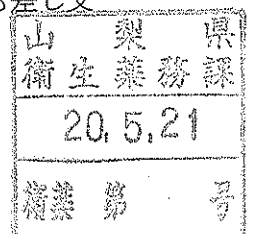 し支
山梨県
衛生薬務課
20.5.21
衛薬第 号